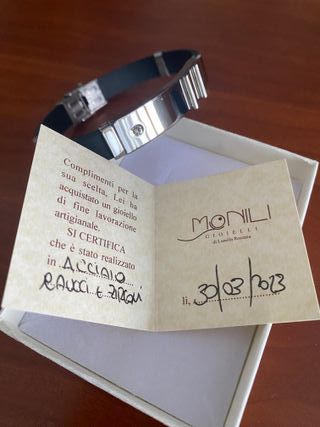 Complimenti per la
sua scelta. Lei ha
acquistato un gioiello
di fine lavorazione
artigianale.
SI CERTIFICA
che è stato realizzato
in ACCIAIO
E
MONILI
GIOIELLI
di Lomelo Rossana
lì, 30/03/2023